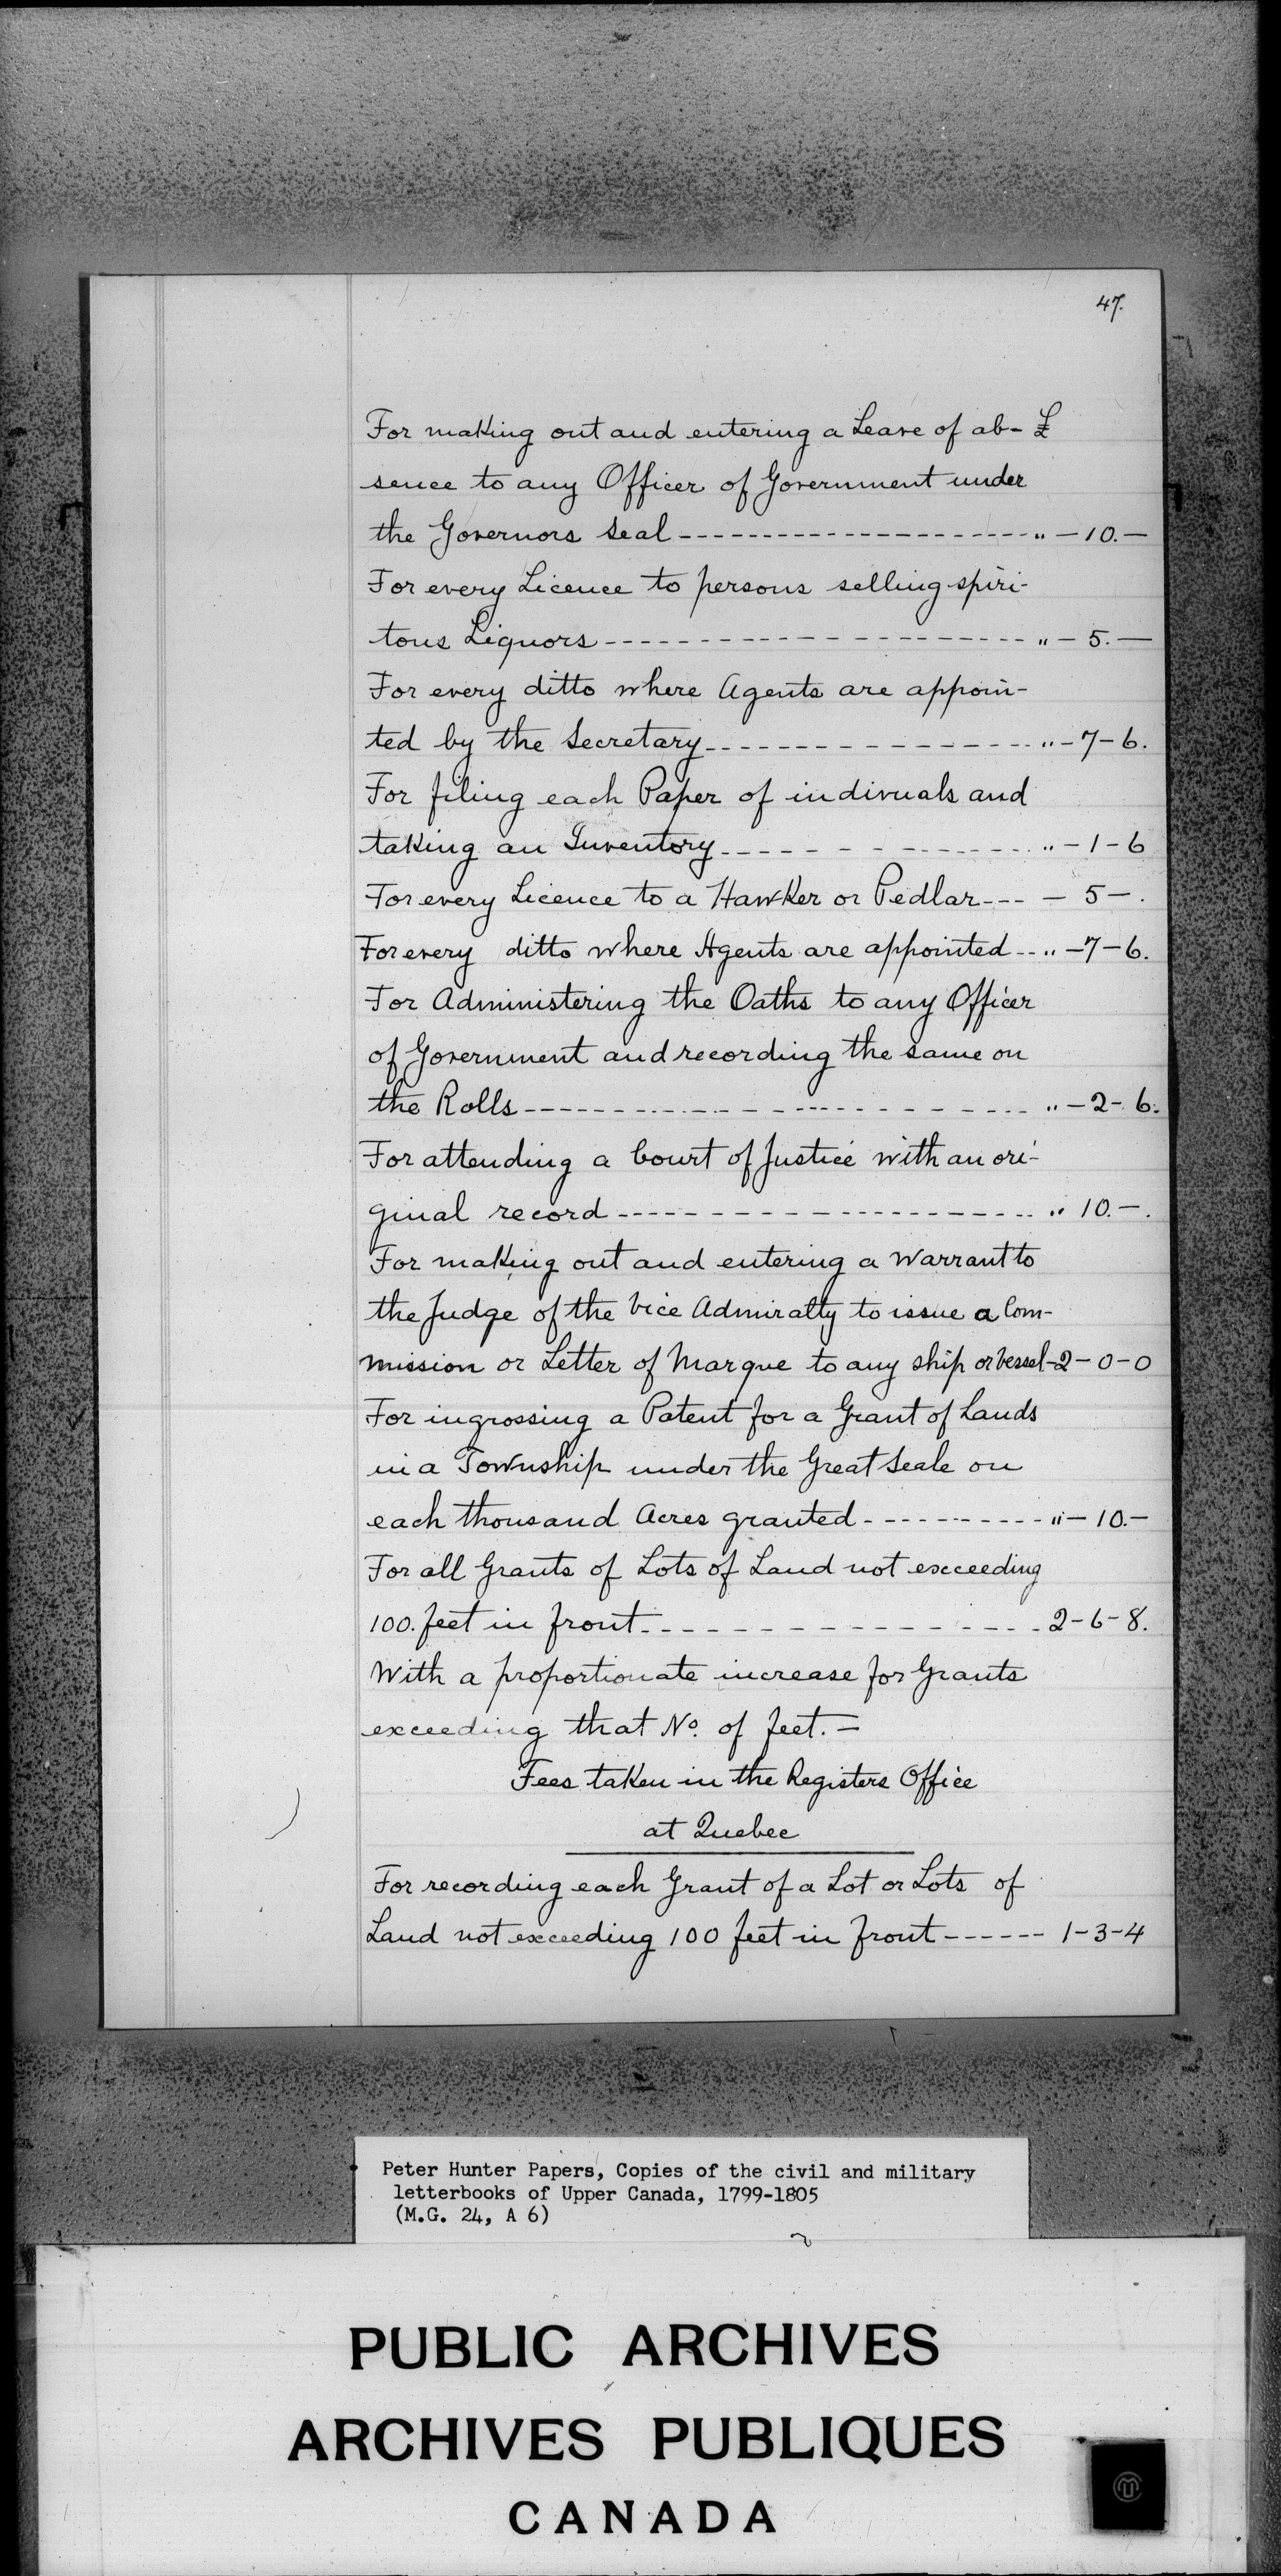 47.
For making out and entering a Leave of ab- £
sence to any Officer of Government under
the Governors Seal -------------------- " - 10. -
For every Licence to persons selling spiri-
tous Liquors -------------------- " - 5. -
For every ditto where Agents are appoin-
ted by the Secretary -------------------- " - 7 - 6.
For filing each Paper of indivuals and
taking an Inventory -------------------- " - 1 - 6
For every Licence to a Hawker or Pedlar --- - 5 - .
For every ditto where Agents are appointed -- " - 7 - 6.
For Administering the Oaths to any Officer
of Government and recording the same on
the Rolls -------------------- " - 2 - 6.
For attending a Court of Justice with an ori-
ginal record -------------------- " 10. - .
For making out and entering a Warrant to
the Judge of the Vice Admiralty to issue a Com-
mission or Letter of Marque to any ship or Vessel - 2 - 0 - 0
For ingrossing a Patent for a Grant of Lands
in a Township under the Great Seale on
each thousand Acres granted ----------- " - 10. -
For all Grants of Lots of Land not exceeding
100. feet in front -------------------- 2 - 6 - 8.
With a proportionate increase for Grants
exceeding that No. of feet. -
Fees taken in the Registers Office
at Quebec
For recording each Grant of a Lot or Lots of
Land not exceeding 100 feet in front ------ 1 - 3 - 4
Peter Hunter Papers, Copies of the civil and military
letterbooks of Upper Canada, 1799-1805
(M.G. 24, A 6)
PUBLIC ARCHIVES
ARCHIVES PUBLIQUES
CANADA